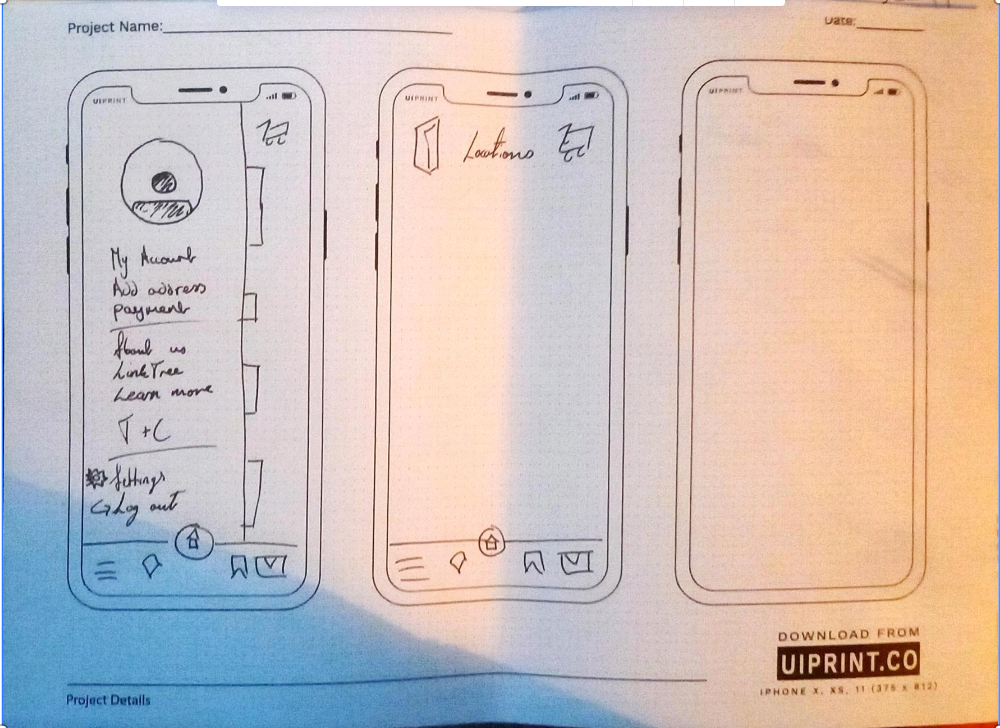 Project Name:
Date:
UIPRINT
UIPRINT
UIPRINT
My Account
Add address
payment
About us
LinkTree
Learn more
T+C
Settings
Log out
Locations
DOWNLOAD FROM
UIPRINT.CO
IPHONE X, XS, 11 (375 X 812)
Project Details